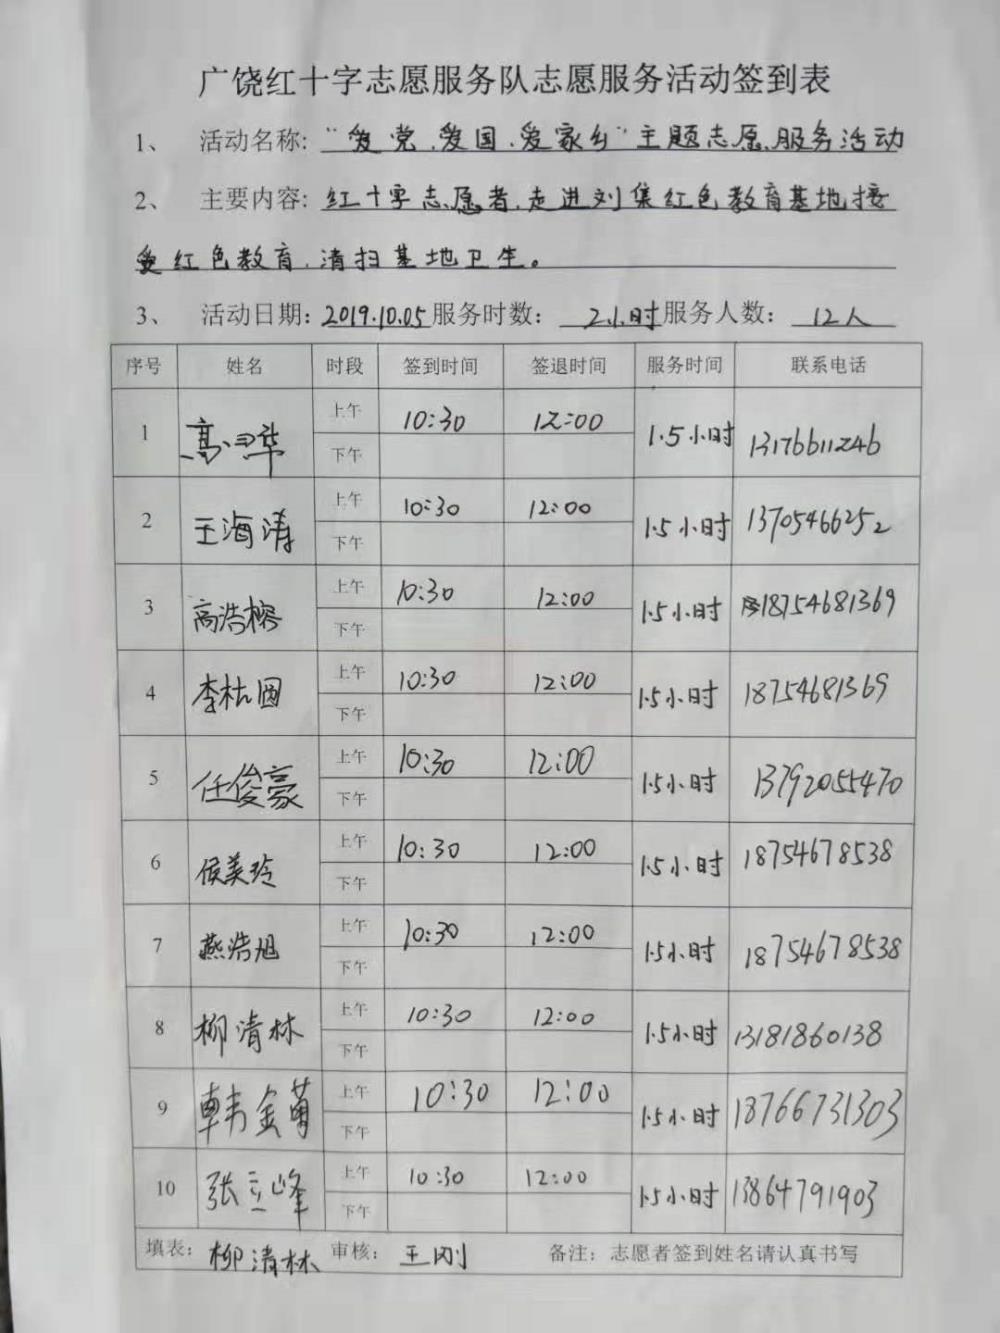 广饶红十字志愿服务队志愿服务活动签到表
1、 活动名称: "爱党.爱国.爱家乡"主题志愿服务活动
2、 主要内容: 红十字志愿者,走进刘集红色教育基地接
受红色教育,清扫基地卫生。
3、 活动日期: 2019.10.05 服务时数: 2小时 服务人数: 12人
序号 姓名 时段 签到时间 签退时间 服务时间 联系电话
1 上午 10:30 12:00 1.5小时 13176611246
下午
2 王海涛 上午 10:30 12:00 1.5小时 13705466252
下午
3 高浩榕 上午 10:30 12:00 1.5小时 18754681369
下午
4 上午 10:30 12:00 1.5小时 18754681369
下午
5 任俊豪 上午 10:30 12:00 1.5小时 13792055470
下午
6 侯美玲 上午 10:30 12:00 1.5小时 18754678538
下午
7 燕浩旭 上午 10:30 12:00 1.5小时 18754678538
下午
8 柳清林 上午 10:30 12:00 1.5小时 13181860138
下午
9 韩金 上午 10:30 12:00 1.5小时 18766731303
下午
10 张立峰 上午 10:30 12:00 1.5小时 13864791903
下午
填表: 柳清林 审核: 王刚 备注: 志愿者签到姓名请认真书写